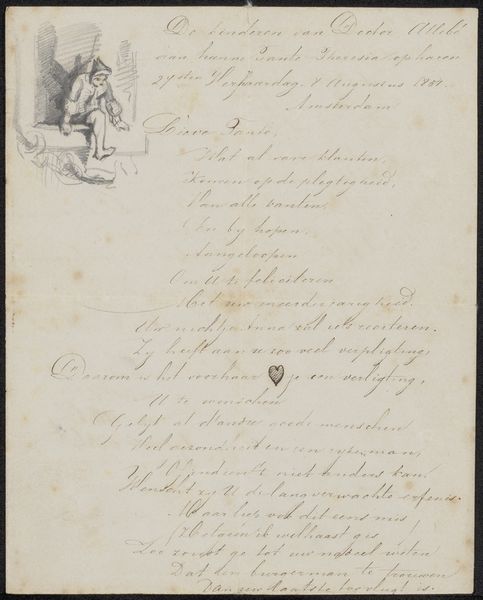 De kinderen van Doctor Allebé
aan hunne Tante Theresia op haren
29sten Verjaardag, 8 Augustus 1857
Amsterdam
Lieve Tante,
Wat al rare klanten,
Komen op de plegtigheid,
Van alle kanten,
by hopen,
Aangeloopen
Om U te feliciteren
Met uw meerderjarigheid.
Uw nichtje Anna zal iets reciteren.
Zy heeft aan u zoo veel verpligting,
Daarom is het voor haar je een verligting,
U te wenschen
Gelyk al d'andre goede menschen
Veel gezondheid en een ryken man,
niet anders kan,
Wenscht zy U de lang verwachte erfenis.
Maar liep ook dit eens mis,
ik welhaast gis,
Zoo zorgt ge tot uw ongeval weten
Dat een burgerman te trouwen
Van uw laatste toevlugt is.